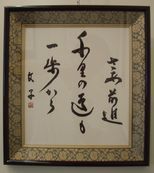 さあ前進
千里の道も
一歩から